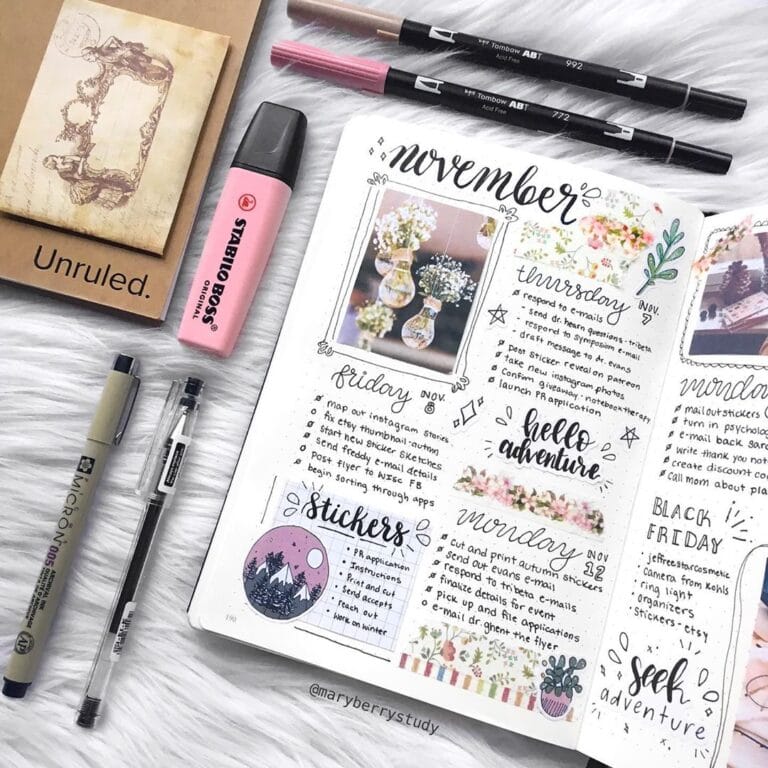 Unruled.
STABILO BOSS
ORIGINAL
Tombow ABT
992
Acid Free
Tombow ABT
772
Acid Free
MICRON 005
november
thursday
NOV. 7
respond to e-mails
- send dr. hearn questions - tribeta
- respond to symposium e-mail
- draft message to dr. evans
post sticker reveal on patreon
take new instagram photos
confirm giveaway - notebook therapy
launch PR application
friday
NOV. 8
map out instagram stories
fix etsy thumbnail - autmn
start new sticker sketches
send freddy e-mail details
post flyer to WISC FB
begin sorting through apps
hello
adventure
stickers
• PR application
• Instructions
• Print and cut
• Send accepts
• Reach out
• Work on winter
monday
NOV 12
cut and print autumn stickers
send out evans e-mail
respond to tribeta e-mails
finalize details for event
pick up and file applications
e-mail dr. ghent the flyer
190
monda
mail out stickers
turn in psycholo
e-mail back
write thank you not
create discount co
call mom about pla
BLACK
FRIDAY
• jeffreestarcosmetic
• camera from Kohls
• ring light
• organizers
• stickers - etsy
seek
adventure
@maryberrystudy